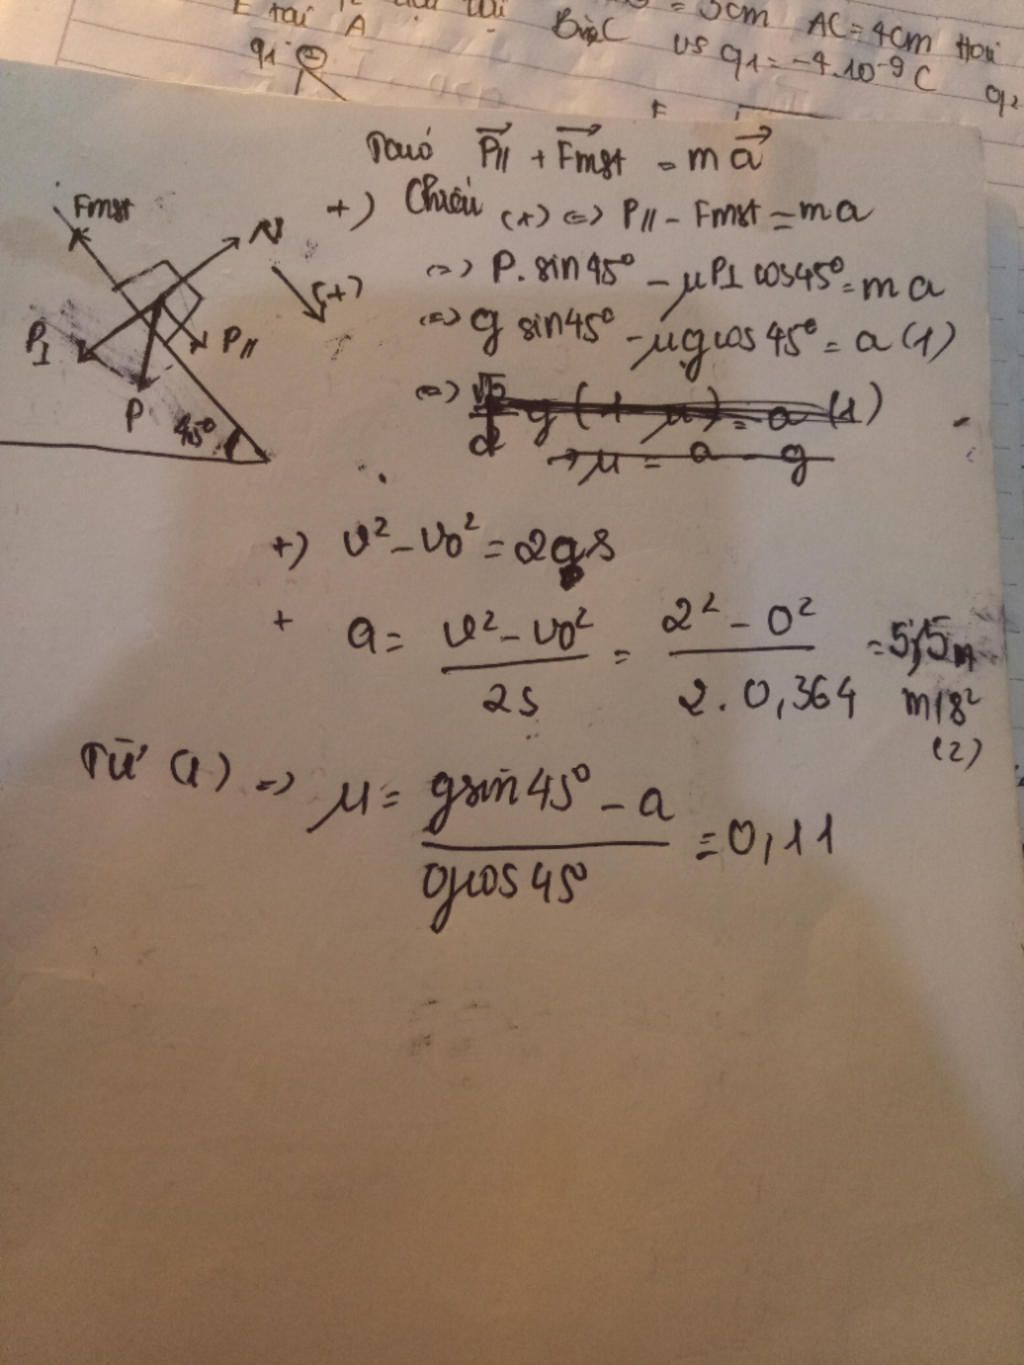 E tại A
B và C
= 5cm AC = 4cm Hai
q1
vs q1 = -4.10⁻⁹ C q2
Ta có P⃗// + F⃗mst = m a⃗
+) Chiếu (+) <=> P// - Fmst = ma
<=> P.sin45° - μP⊥ cos45° = ma
<=> g sin45° - μg cos45° = a (1)
Fmst
N
(+)
P⊥
P//
P
45°
+) v² - v0² = 2as
+ a = (v² - v0²)/(2s) = (2² - 0²)/(2.0,364) = 5,5 m/s² (2)
Từ (1) => μ = (gsin45° - a)/(gcos45°) = 0,11